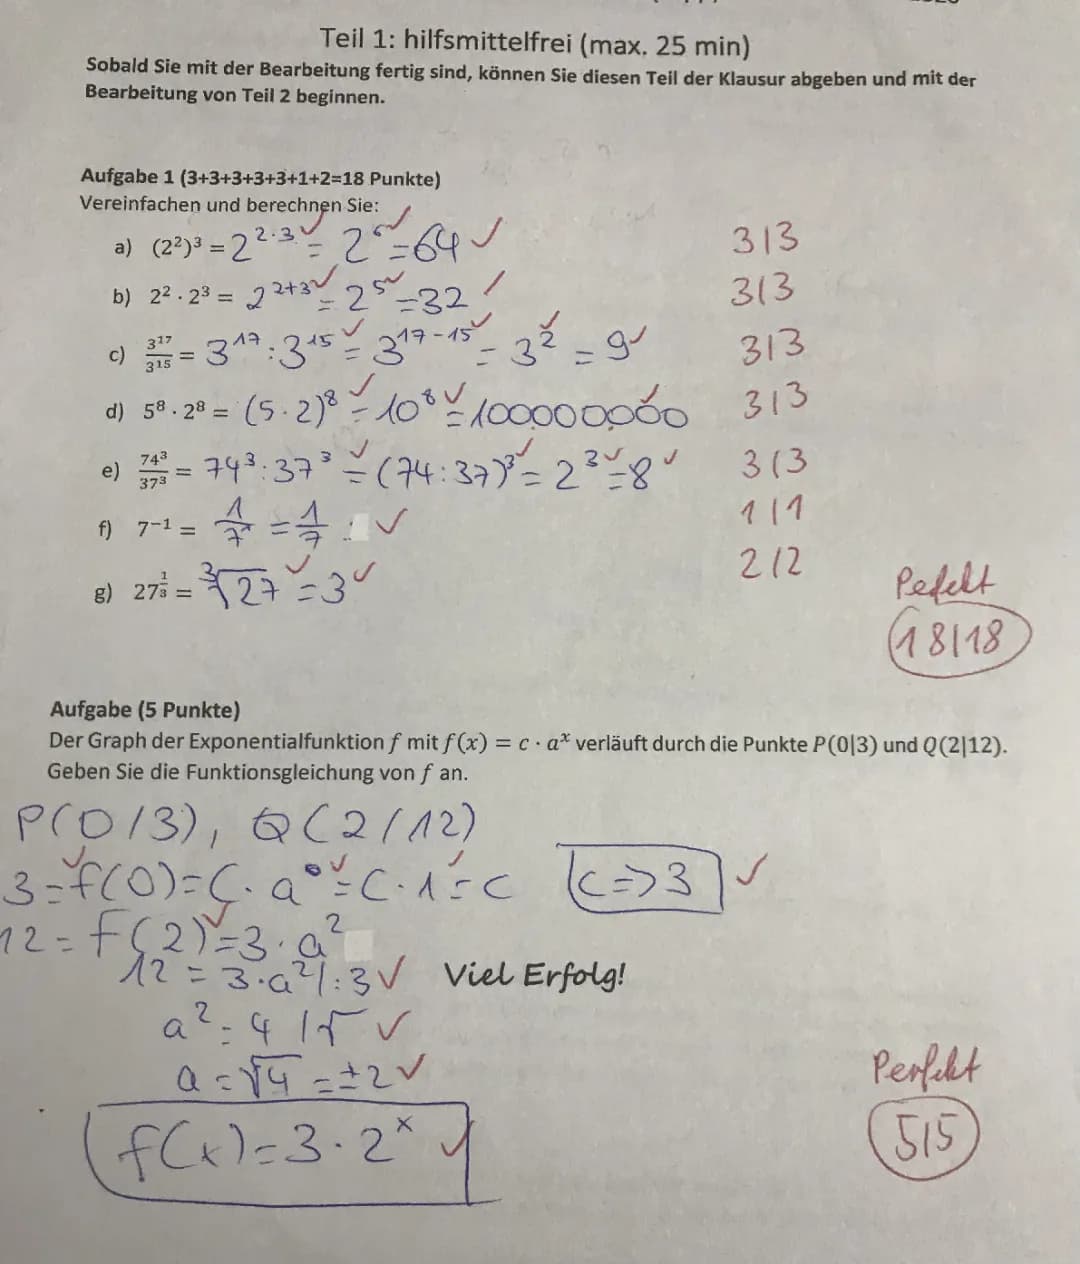 Teil 1: hilfsmittelfrei (max. 25 min)
Sobald Sie mit der Bearbeitung fertig sind, können Sie diesen Teil der Klausur abgeben und mit der
Bearbeitung von Teil 2 beginnen.
Aufgabe 1 (3+3+3+3+3+1+2=18 Punkte)
Vereinfachen und berechnen Sie:
a) (2²)³ = 2^{2·3} = 2⁶ = 64 ✓ 3|3
b) 2² · 2³ = 2^{2+3} = 2⁵ = 32 3|3
c) 3¹⁷/3¹⁵ = 3¹⁷ : 3¹⁵ = 3^{17-15} = 3² = 9 ✓ 3|3
d) 5⁸ · 2⁸ = (5·2)⁸ = 10⁸ = 100000000 3|3
e) 74³/37³ = 74³ : 37³ = (74:37)³ = 2³ = 8 ✓ 3|3
f) 7⁻¹ = 1/7¹ = 1/7 ✓ 1|1
g) 27^{1/3} = ³√27 = 3 ✓ 2|2
Pefekt
18|18
Aufgabe (5 Punkte)
Der Graph der Exponentialfunktion f mit f(x) = c · aˣ verläuft durch die Punkte P(0|3) und Q(2|12).
Geben Sie die Funktionsgleichung von f an.
P(0/3), Q(2/12)
3 = f(0) = C · a⁰ = C · 1 = C C => 3 ✓
12 = f(2) = 3 · a²
12 = 3 · a² | : 3 ✓ Viel Erfolg!
a² = 4 | √ ✓
a = √4 = ±2 ✓
Perfekt
f(x) = 3 · 2ˣ ✓ 5|5